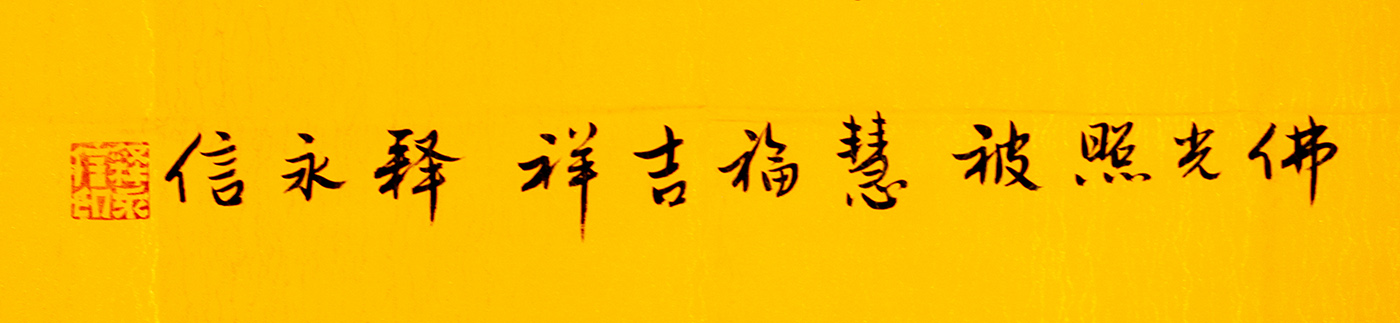 佛光照被 慧福吉祥 释永信
释永信印